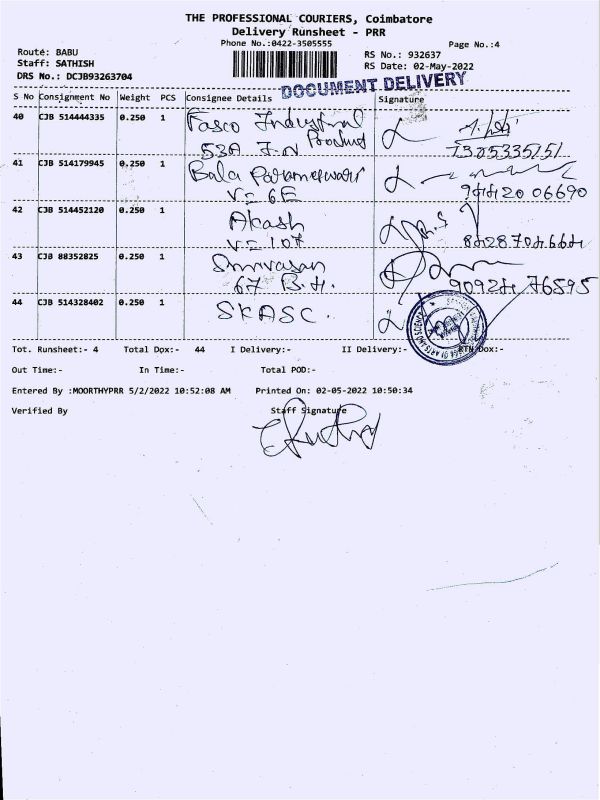 THE PROFESSIONAL COURIERS, Coimbatore
Delivery Runsheet - PRR
Phone No.:0422-3505555
Page No.:4
Routé: BABU
Staff: SATHISH
DRS No.: DCJB93263704
RS No.: 932637
RS Date: 02-May-2022
DOCUMENT DELIVERY
S No Consignment No Weight PCS Consignee Details Signature
40 CJB 514444335 0.250 1 Fasco Industrial
Product
53A
7305335151
41 CJB 514179945 0.250 1 Bala Parameswari
V= 6E
06690
42 CJB 514452120 0.250 1 Akash
V= 107
43 CJB 88352825 0.250 1 Srinivasan
67 B.H.
76595
44 CJB 514328402 0.250 1 SKASC.
Tot. Runsheet:- 4 Total Dpx:- 44 I Delivery:- II Delivery:- RTN Dox:-
Out Time:- In Time:- Total POD:-
Entered By :MOORTHYPRR 5/2/2022 10:52:08 AM Printed On: 02-05-2022 10:50:34
Verified By Staff Signature